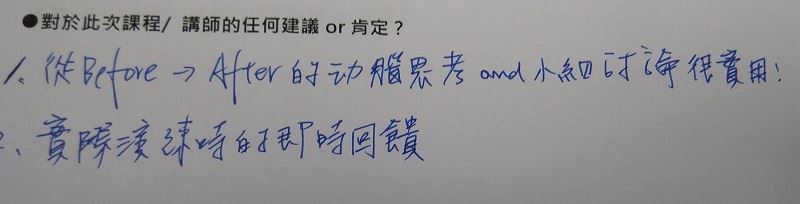 ●對於此次課程/ 講師的任何建議 or 肯定？
1、從Before → After 的动腦思考 and 小組討論很實用！
2、實際演練時的即時回饋